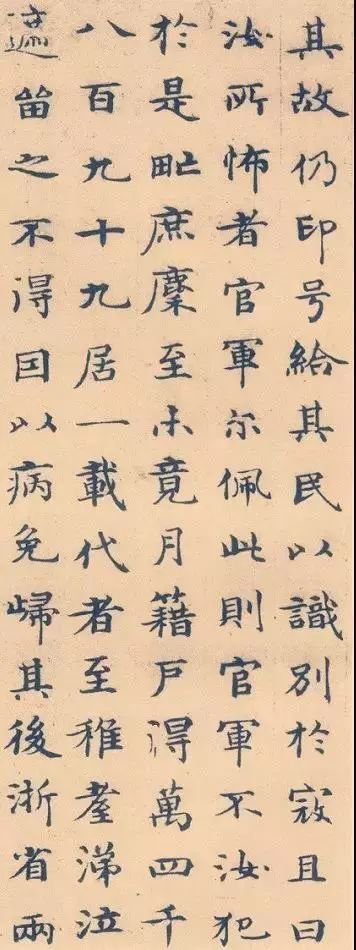 其故仍印号給其民以識別於寇且曰
汝所怖者官軍尔佩此則官軍不汝犯
於是甿庶麇至未竟月籍戶得萬四千
八百九十九居一載代者至稚耋涕泣
遮留之不得因以病免歸其後浙省兩